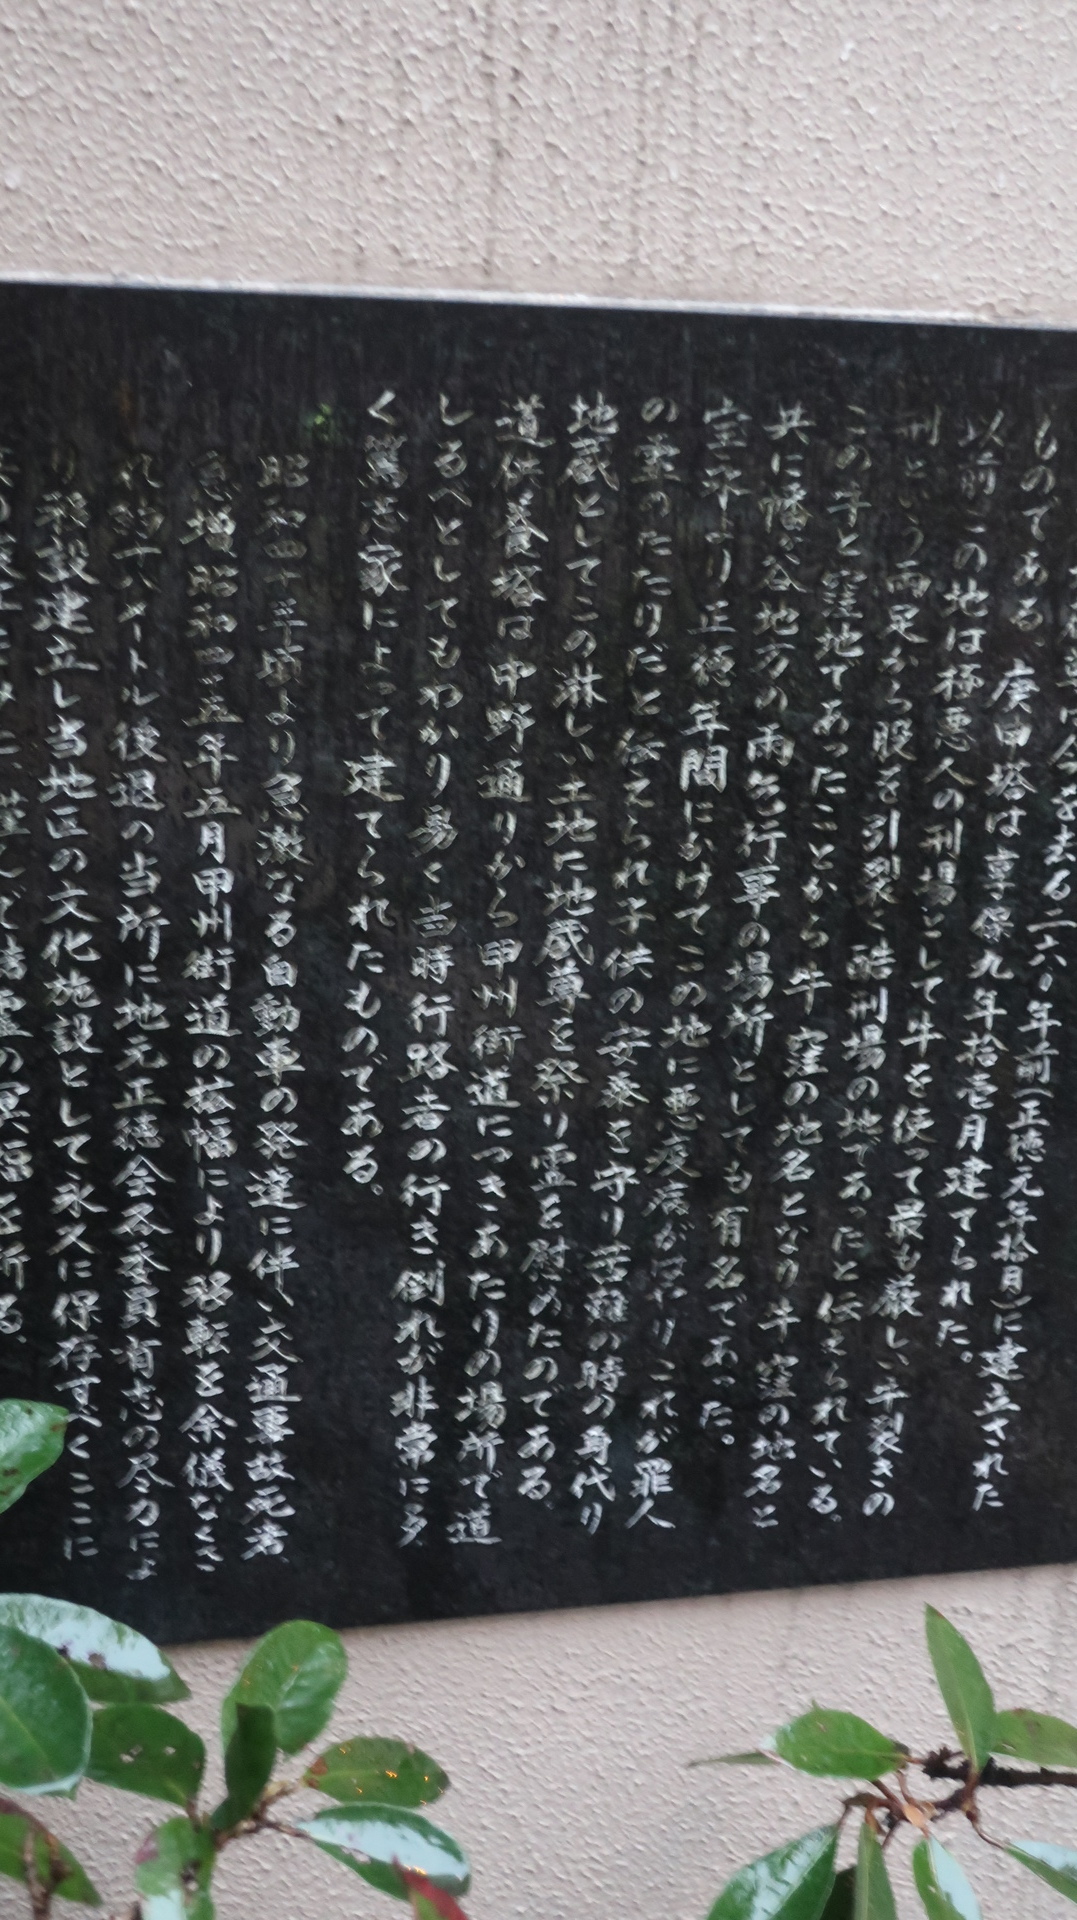 今を去る二六〇年前(正徳元年拾月)に建立された
ものである。庚申塔は享保九年拾壱月建てられた。
以前この地は極悪人の刑場として牛を使って最も厳しい牛裂きの
刑という両足から股を引裂く酷刑場の地であったと伝えられている。
この牢と窪地であったことから牛窪の地名となり牛窪の地名と
共に幡ヶ谷地方の雨乞行事の場所としても有名であった。
宝永より正徳年間にかけてこの地に悪疫病がはやりこれが罪人
の霊のたたりだと伝えられ子供の安泰を守り苦難の時の身代り
地蔵としてこの淋しい土地に地蔵尊を祭り霊を慰めたのである。
道供養塔は中野通りから甲州街道につきあたりの場所で道
しるべとしてもわかり易く当時行路者の行き倒れが非常に多
く篤志家によって建てられたものである。
昭和四十年頃より急激なる自動車の発達に伴い交通事故死者
急増昭和四五年五月甲州街道の拡幅により移転を余儀なくさ
れ約十八メートル後退の当所に地元正徳会各委員有志の尽力によ
り移設建立し当地区の文化施設として永久に保存すべくここに
霊の冥福を祈る。